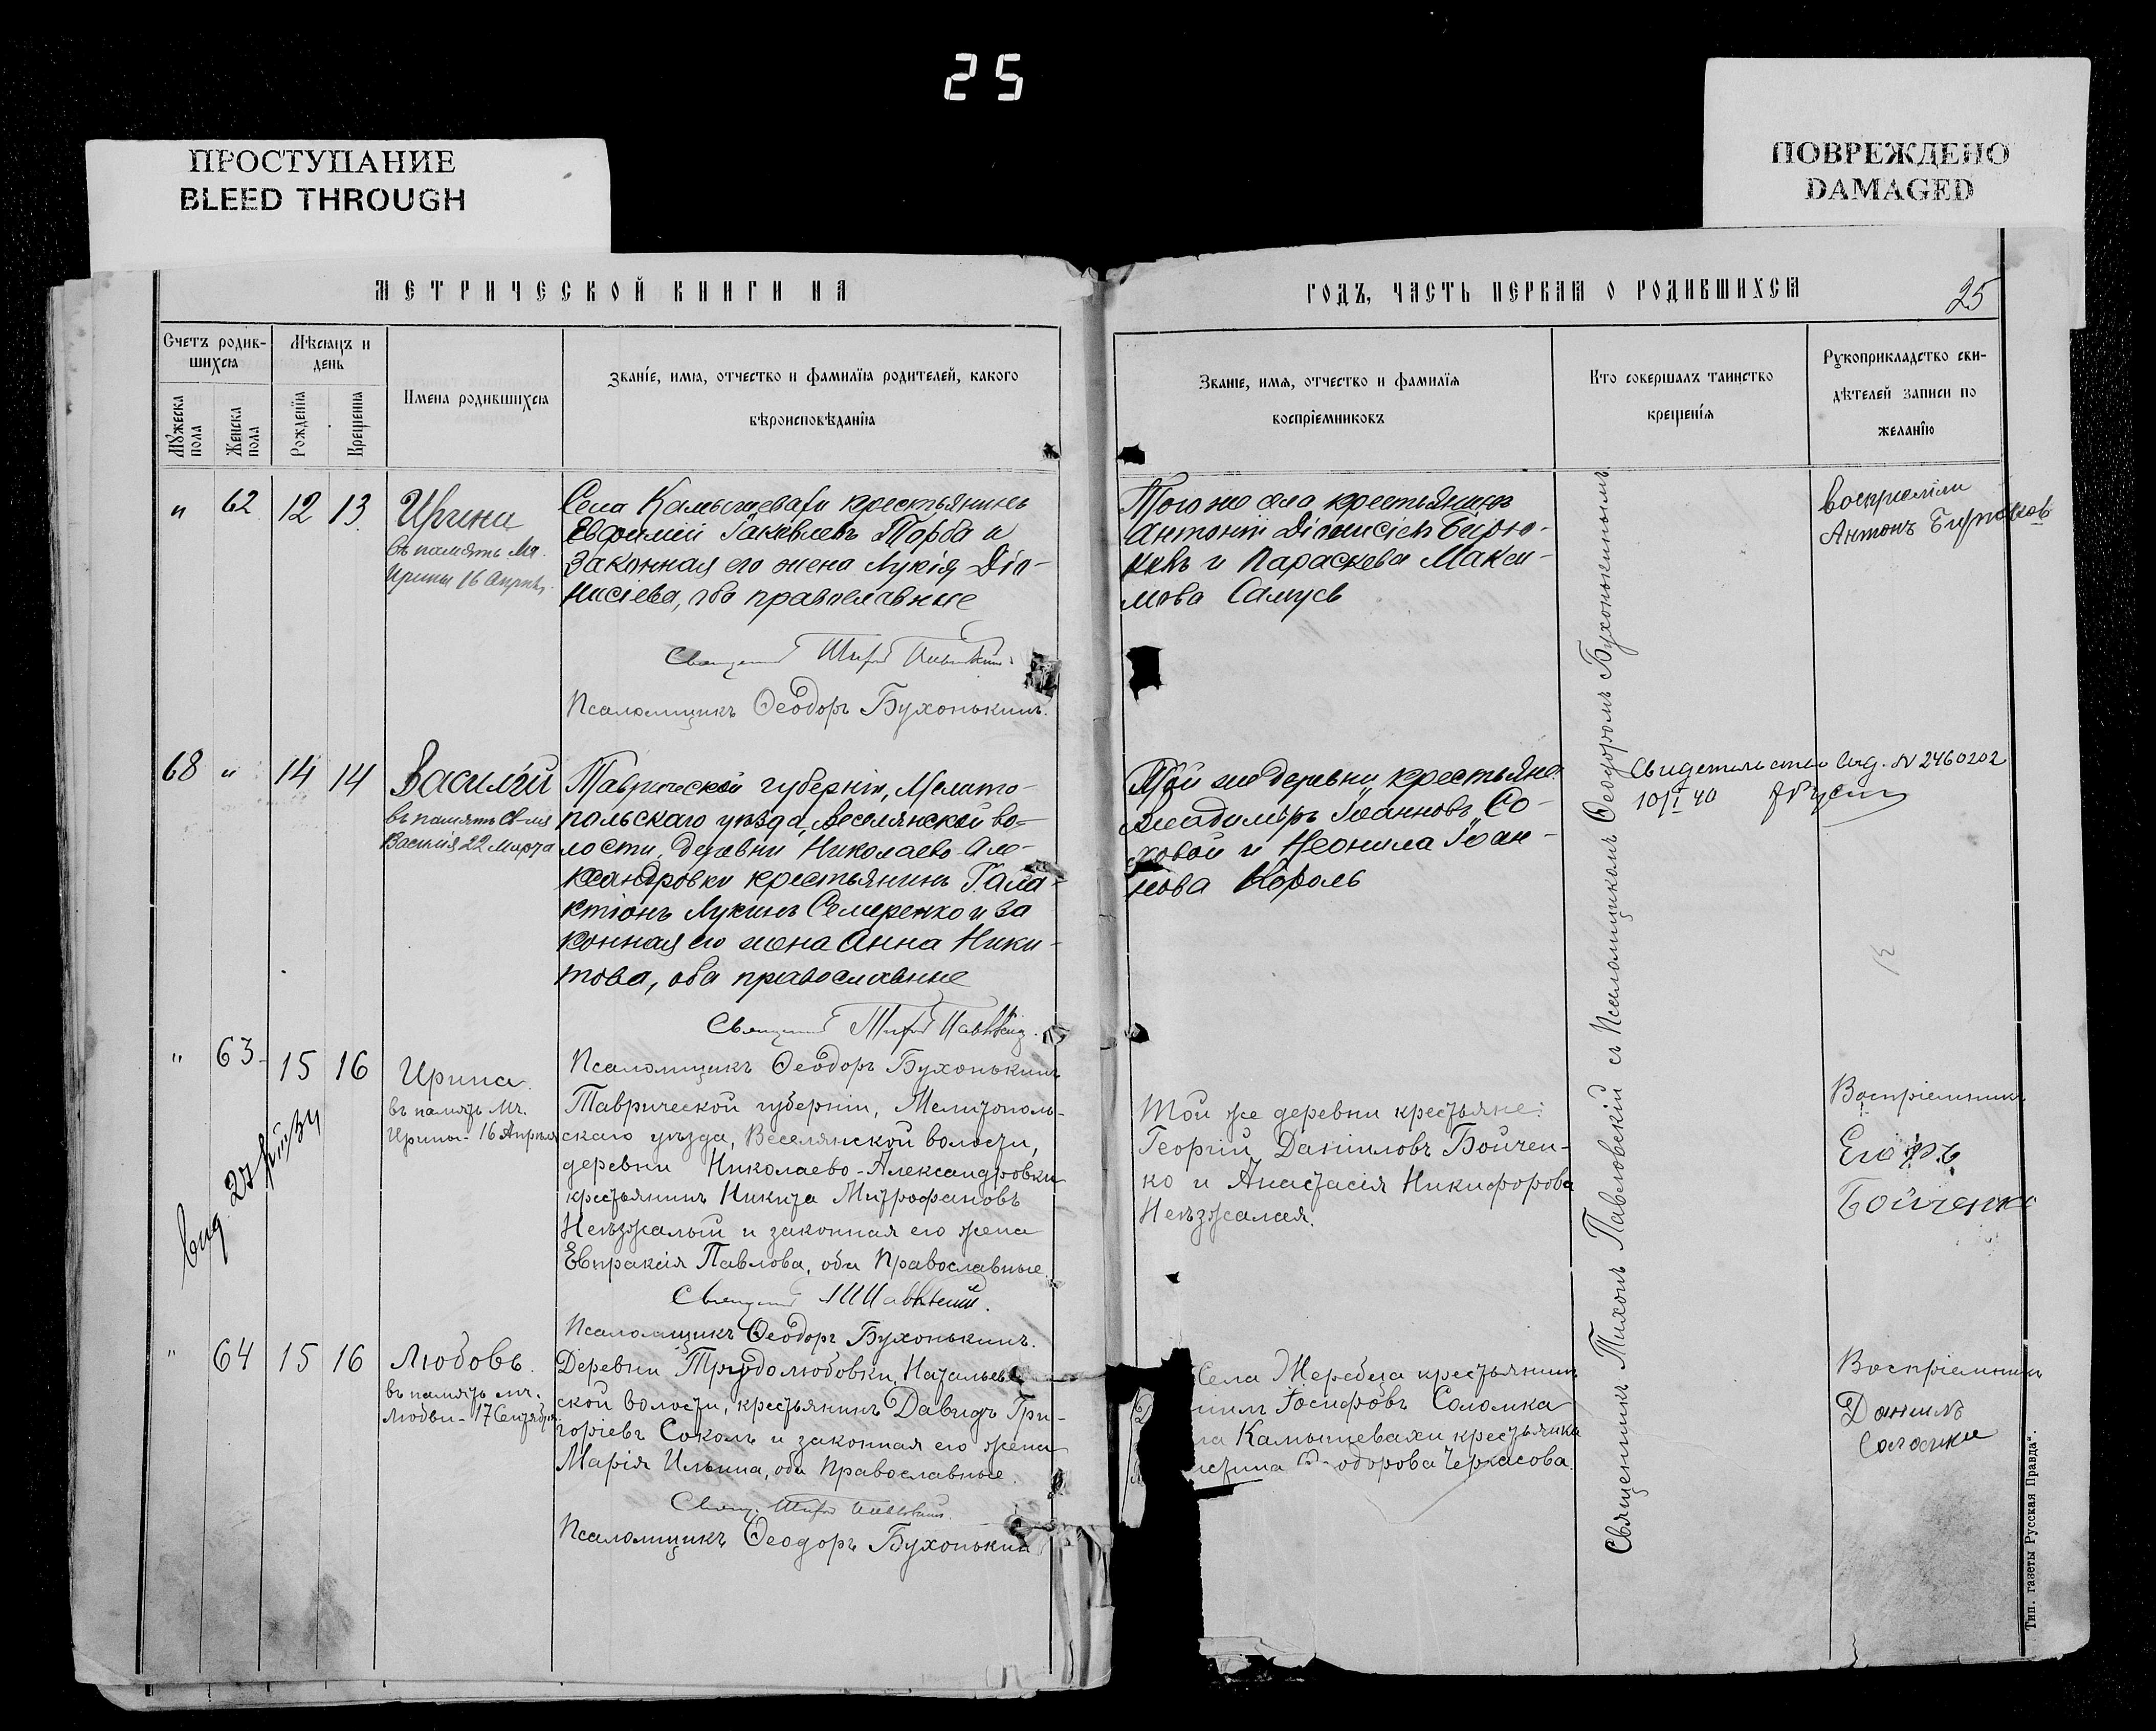 25
ПРОСТУПАНИЕ
BLEED THROUGH
ПОВРЕЖДЕНО
DAMAGED
МЕТРИЧЕСКОЙ КНИГИ НА
ГОДЪ, ЧАСТЬ ПЕРВАЯ О РОДИВШИХСЯ
25
Счетъ родив-
шихся
Мѣсяцъ и
день
Мужеска
пола
Женска
пола
Рожденія
Крещенія
Имена родившихся
Званіе, имя, отчество и фамилія родителей, какого
вѣроисповѣданія
Званіе, имя, отчество и фамилія
воспріемниковъ
Кто совершалъ таинство
крещенія
Рукоприкладство сви-
дѣтелей записи по
желанію
" 62 12 13
Ирина
въ память Мч.
Ирины 16 Апрѣля
Села Камышевахи крестьянинъ
Евфимій Іаковлевъ Торба и
законная его жена Лукія Діо-
нисіева, оба православные
Псаломщикъ Ѳеодоръ Бухонькинъ.
Того же села крестьянинъ
Антоній Діонисіевъ Бирю-
ковъ и Параскева Макси-
мова Самусь
Антонъ Бирюковъ
68 " 14 14
Василій
въ память
Василія 22 Марта
Таврической губерніи, Мелито-
польскаго уѣзда, Веселянской во-
лости, деревни Николаево-Але-
ксандровки крестьянинъ Гала-
ктіонъ Лукинъ Семеренко и за
конная его жена Анна Ники-
това, оба православные
Псаломщикъ Ѳеодоръ Бухонькинъ
Той же деревни крестьяне
Владиміръ Іоанновъ Со-
ховой и Неонила Іоан-
нова Король
Свидетельство № 2460202
10/I 40
" 63 15 16
Ирина
въ память Мч.
Ирины - 16 Апрѣля
Таврической губерніи, Мелитополь-
скаго уѣзда, Веселянской волости,
деревни Николаево-Александровки
крестьянинъ Никита Митрофановъ
Неѣзжалый и законная его жена
Евпраксія Павлова, оба Православные.
Псаломщикъ Ѳеодоръ Бухонькинъ.
Той же деревни крестьяне:
Георгій Даніиловъ Бойчен-
ко и Анастасія Никифорова
Неѣзжалая.
Воспріемникъ
Егоръ
Бойченко
" 64 15 16
Любовь.
въ память мч.
Любви - 17 Сентября
Деревни Трудолюбовки, Натальев-
ской волости, крестьянинъ Давидъ Гри-
горіевъ Соколъ и законная его жена
Марія Ильина, оба Православные.
Псаломщикъ Ѳеодоръ Бухонькин
Села Жеребца крестьянинъ
Іосифовъ Соломка
Камышевахи крестьянка
Черкасова.
Воспріемникъ
Данилъ
Соломка
Священникъ Тихонъ Павловскій съ Псаломщикомъ Ѳеодоромъ Бухонькинымъ
Тип. газеты „Русская Правда“.